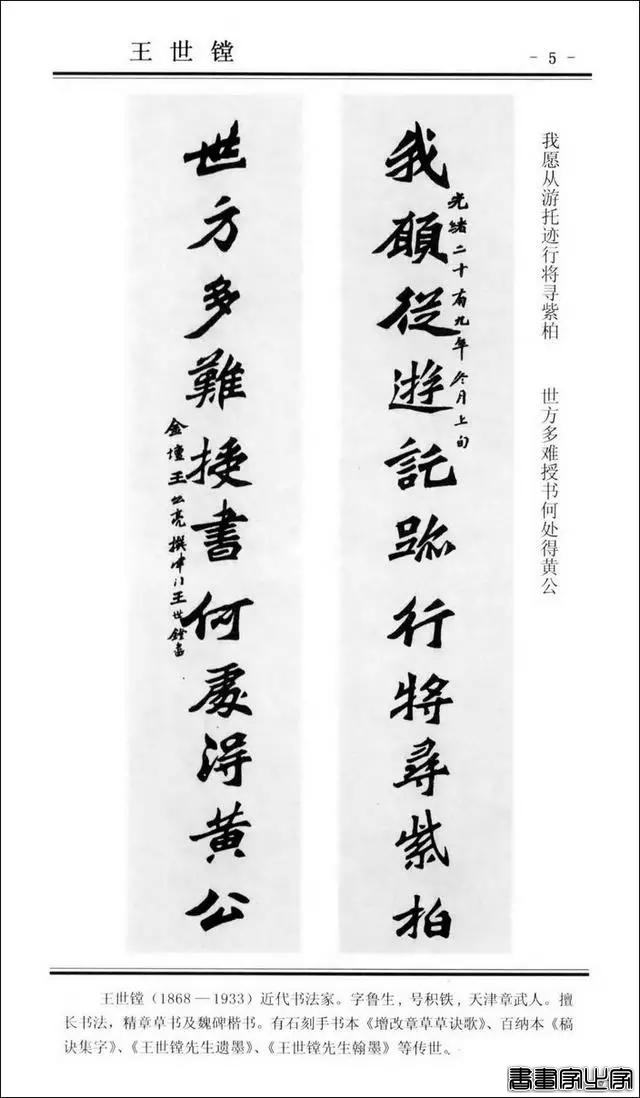 王世镗
- 5 -
我愿从游托迹行将寻紫柏 世方多难授书何处得黄公
我願從遊託跡行將尋紫柏
光緒二十有九年冬月上旬
世方多難授書何處得黃公
金壇王 亮撰 王世鏜書
王世镗（1868—1933）近代书法家。字鲁生，号积铁，天津章武人。擅
长书法，精章草书及魏碑楷书。有石刻手书本《增改章草草诀歌》、百纳本《稿
诀集字》、《王世镗先生遗墨》、《王世镗先生翰墨》等传世。
書畫家必字